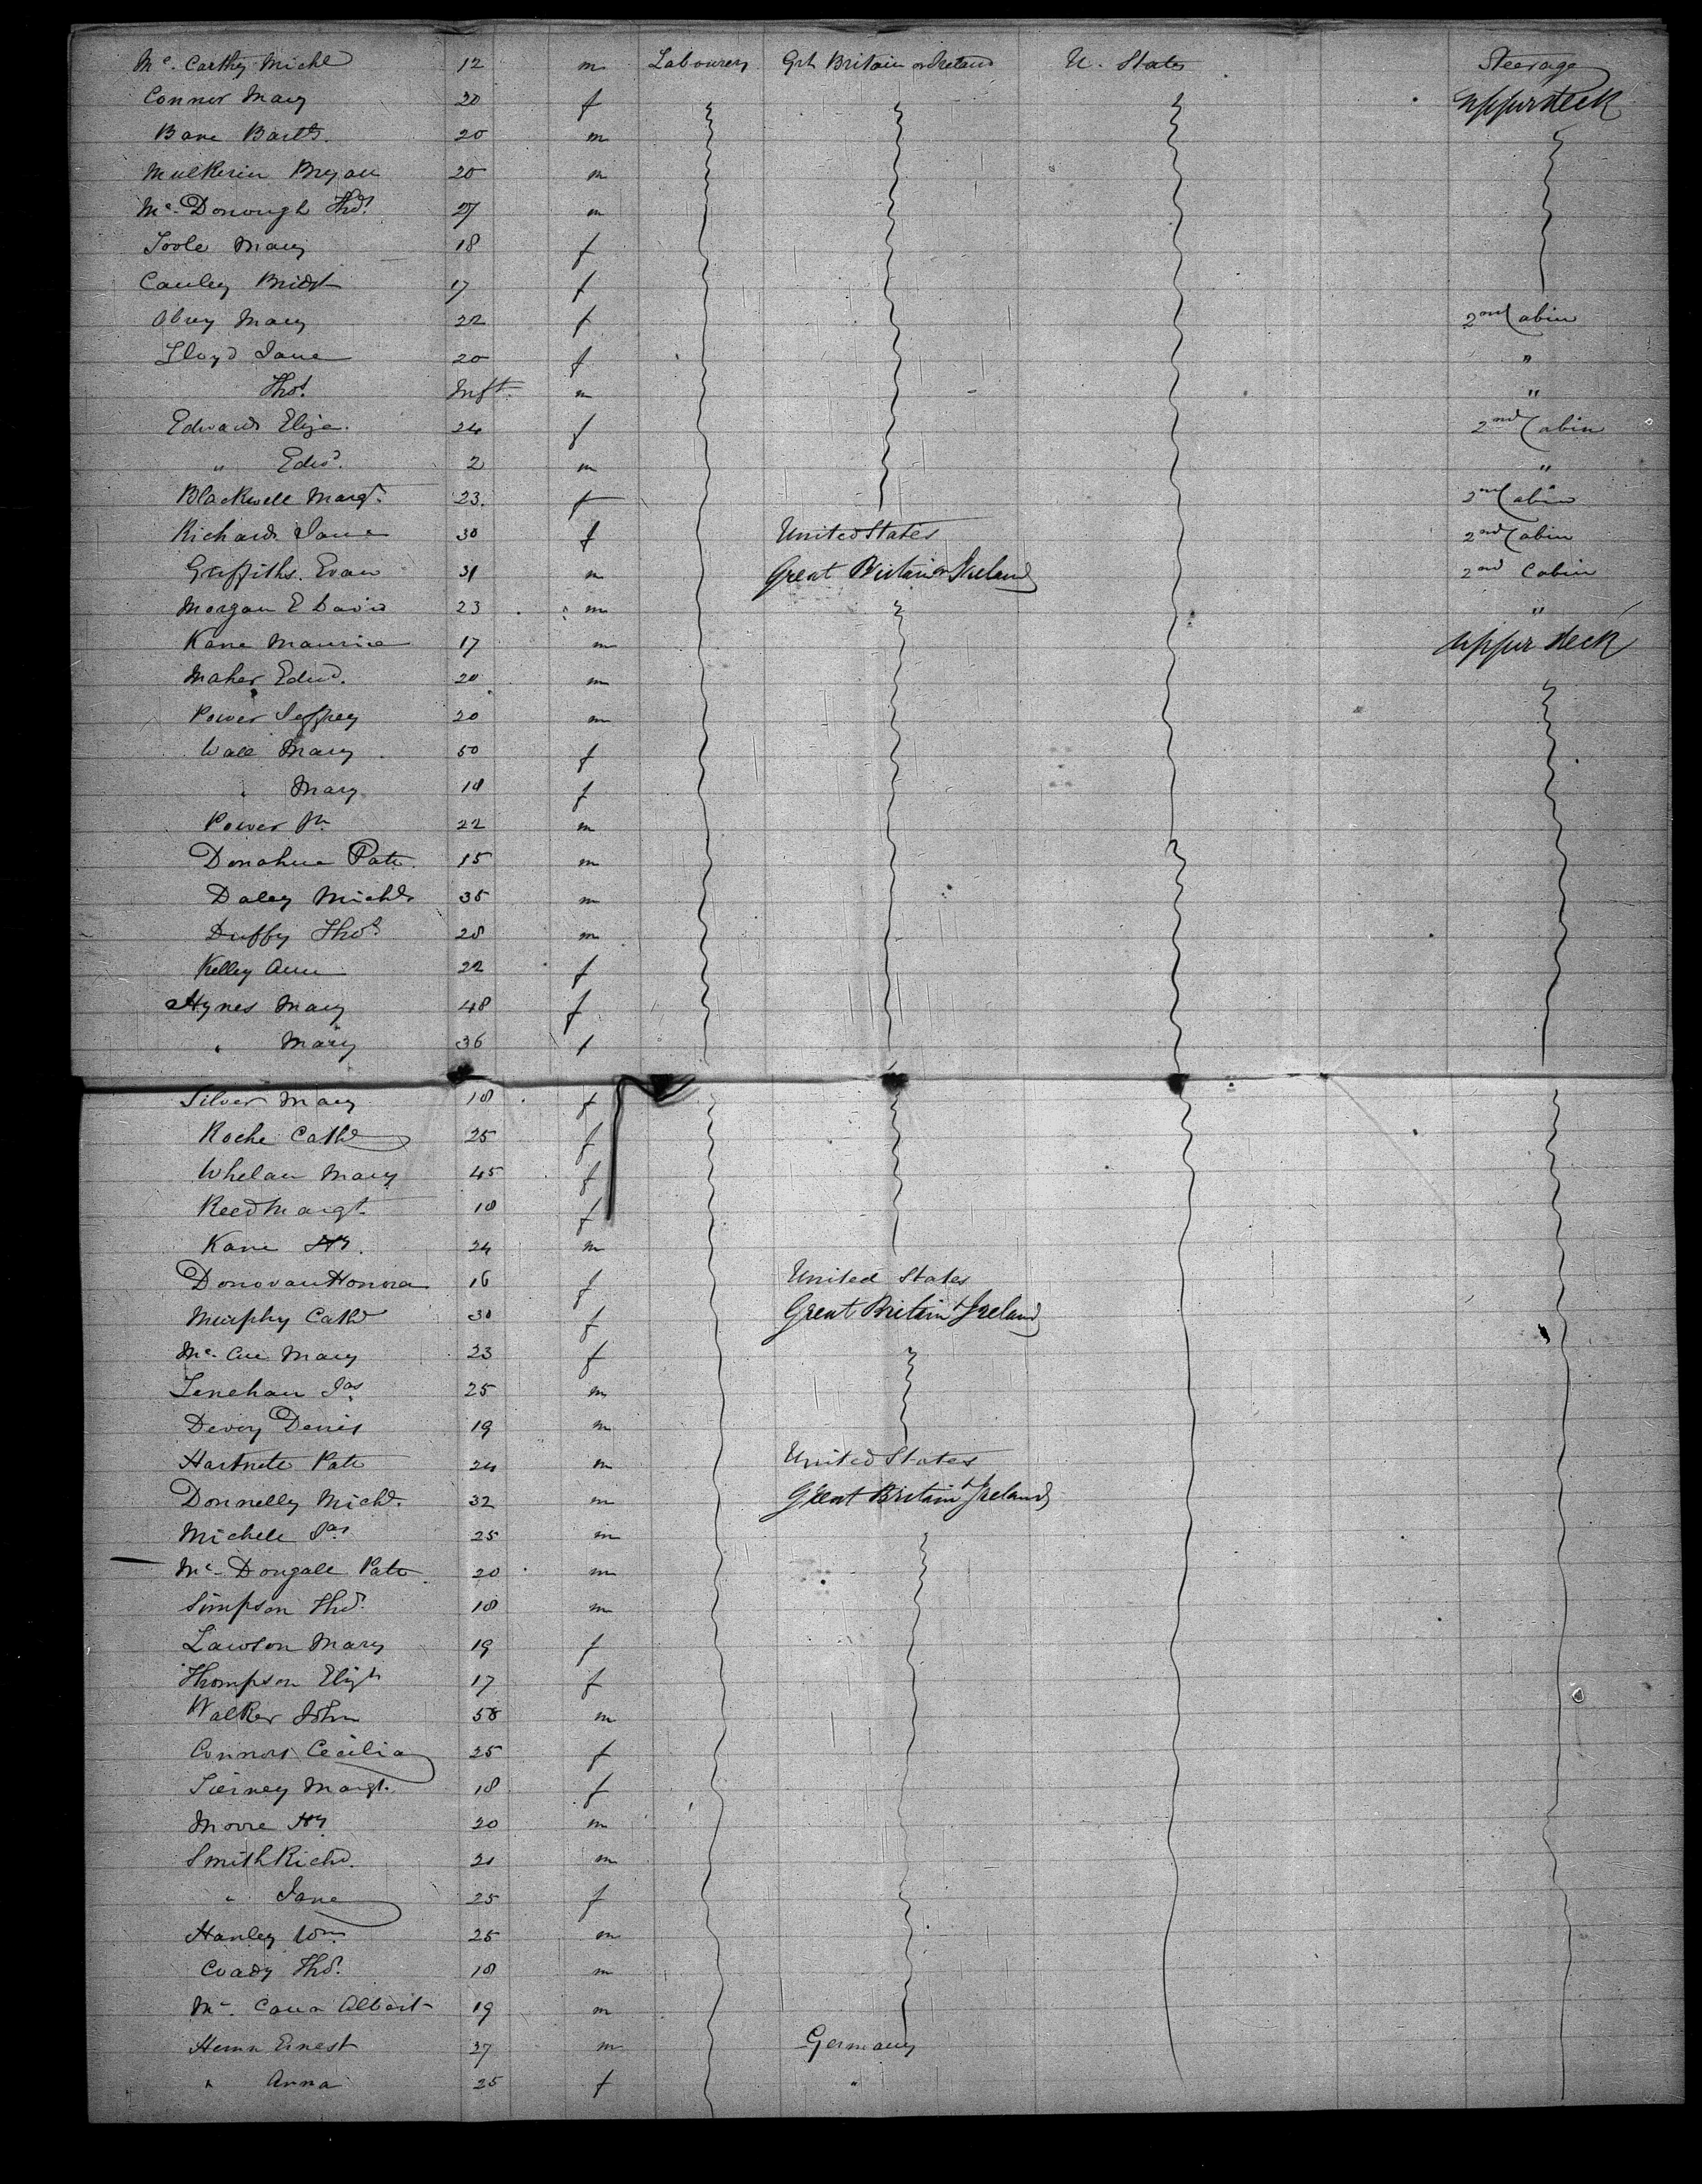 Mc. Carthy Michl 12 m Labourers Grt Britain or Ireland U. States Steerage
Connor Mary 20 f upper deck
Bane Barth. 20 m
Mulkerin Bryan 20 m
Mc. Donough Thos. 27 m
Toole Mary 18 f
Cauley Bridt 17 f
Mary 22 f 2nd Cabin
Lloyd Jane 20 f "
Thos. Inft. m "
Edwards Eliza. 24 f 2nd Cabin
" Edwd. 2 m "
Blackwell Margt. 23. f 2nd Cabin
Richards Jane 30 f United States 2nd Cabin
Griffiths. Evan 31 m Great Britain or Ireland 2nd Cabin
Morgan E David 23 m "
Kane Maurice 17 m upper deck
Maher Edwd. 20 m
Power Jeffrey 20 m
Wall Mary 50 f
" Mary 18 f
Power Jn 22 m
Donahue Patk. 15 m
Daley Michl 35 m
Duffy Thos. 28 m
Kelley Ann 22 f
Hynes Mary 48 f
" Mary 36 f
Silver Mary 18 f
Roche Cathe 25 f
Whelan Mary 45 f
Reed Margt. 18 f
Kane Hy. 24 m
Donovan Honora 16 f United States
Murphy Cathe 30 f Great Britain & Ireland
Mc. Cue Mary 23 f
Lenehan Jas 25 m
Devoy Denis 19 m
Hartnett Patk 24 m United States
Donnelly Michl. 32 m Great Britain & Ireland
Michell Jas 25 m
Mc. Dougall Patk. 20 m
Simpson Thos. 18 m
Lawson Mary 19 f
Thompson Elizh 17 f
Walker John 58 m
Connors Cecilia 25 f
Tierney Margt. 18 f
Moore Hy. 20 m
Smith Richd. 21 m
" Jane 25 f
Hanley Wm. 25 m
Coady Thos. 18 m
Mc. Cann Albert 19 m
Ernest 37 m Germany
" Anna 25 f "